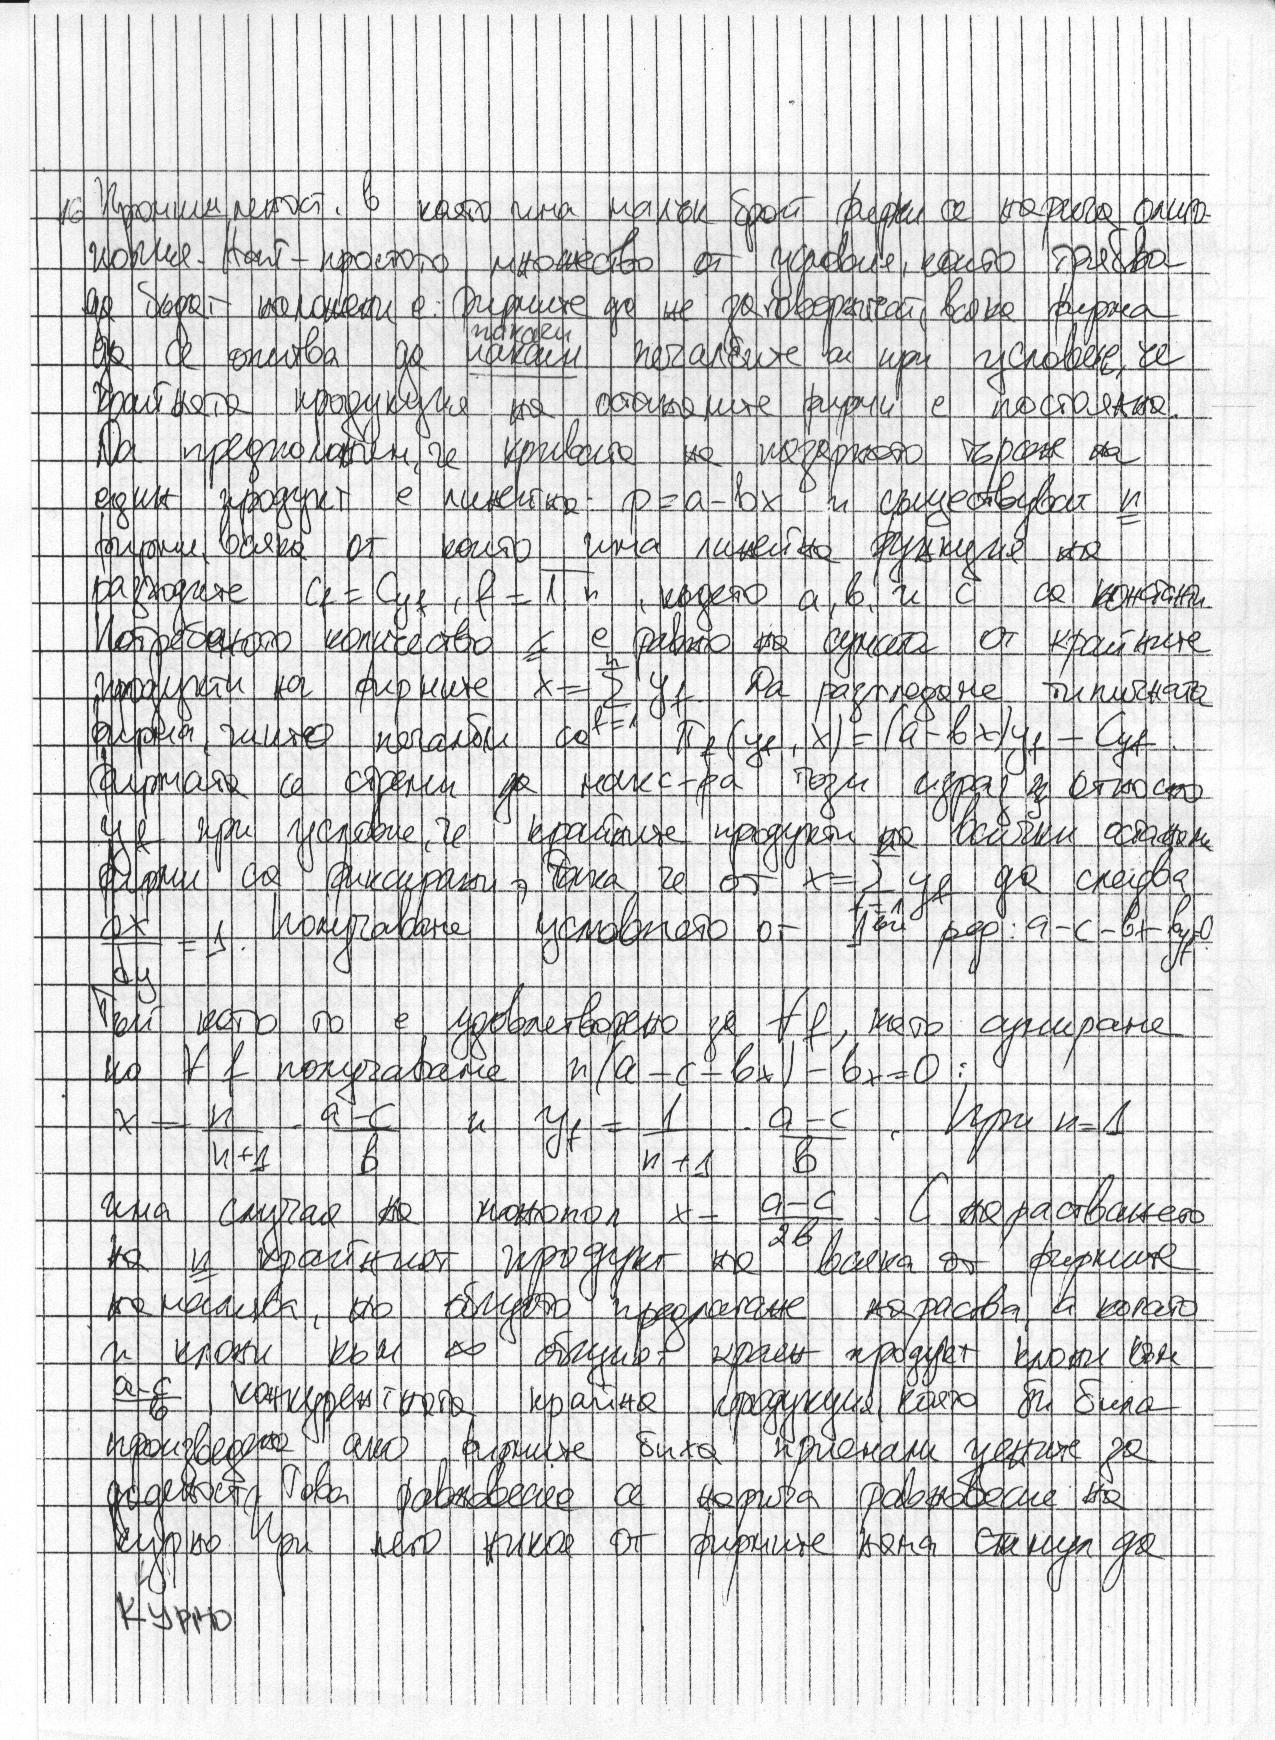 16 Промишленост, в която има малък брой фирми се нарича олиго-
полия. Най-простото множество от условия, които трябва
да бъдат наложени е: Фирмите да не заговорничат, всяка фирма
да се опитва да макси печалбите си при условие, че
макси
крайната продукция на останалите фирми е постоянна.
Да предположим, че кривата на пазарното търсене на
един продукт е линейна: p = a - bx и съществуват n
фирми, всяка от които има линейна функция на
разходите Cf = Cyf, f = 1, n, където a, b, и c са константи.
Потребеното количество е равно на сумата от крайните
продукти на фирмите x = Σ yf. Да разгледаме типичната
n f=1
фирма, чиито печалби са πf(yf, x) = (a - bx)yf - Cyf.
Фирмата се стреми да макс-ра този израз относно
yf при условие, че крайните продукти на всички останали
фирми са фиксирани, така че от x = Σ yf да следва
n f=1
dx/dy = 1. Получаваме условието от 1ви ред: a - c - bx - byf = 0
Тъй като то е удовлетворено за ∀ f, като сумираме
по ∀ f получаваме n(a - c - bx) - bx = 0 :
x = n/n+1 . a-c/b и yf = 1/n+1 . a-c/b . При n = 1
има случая на монопол x = a-c/2b . С нарастването
на n крайният продукт на всяка от фирмите
намалява, но общото предлагане нараства, а когато
n клони към ∞ общият краен продукт клони към
a-c/b, конкурентната крайна продукция, която би била
произведена ако фирмите биха приемали цените за
дадености. Това равновесие се нарича равновесие на
Курно. При него никоя от фирмите няма стимул да
КУРНО